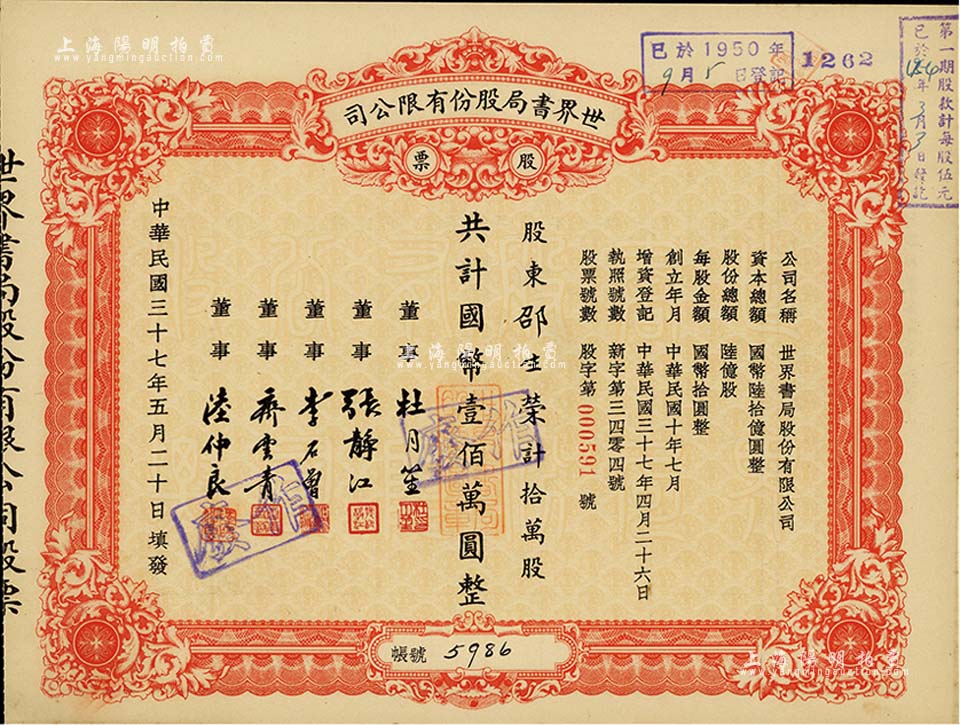 上海陽明拍賣
www.yangmingauction.com
已於1950年
9月5日登記
1262
第一期股款計每股伍元
世界書局股份有限公司
股票
公司名稱 世界書局股份有限公司
資本總額 國幣陸拾億圓整
股份總額 陸億股
每股金額 國幣拾圓整
創立年月 中華民國十年七月
增資登記 中華民國三十七年四月二十六日
執照號數 新字第三四零四號
股票號數 股字第000591號
股東邵 榮計拾萬股
共計國幣壹佰萬圓整
董事 杜月笙
董事 張靜江
董事 李石曾
董事 齊雲青
董事 陸仲良
中華民國三十七年五月二十日填發
帳號 5986
世界書局股份有限公司股票
上海陽明拍賣
www.yangmingauction.com
上海陽明拍賣
www.yangmingauction.com